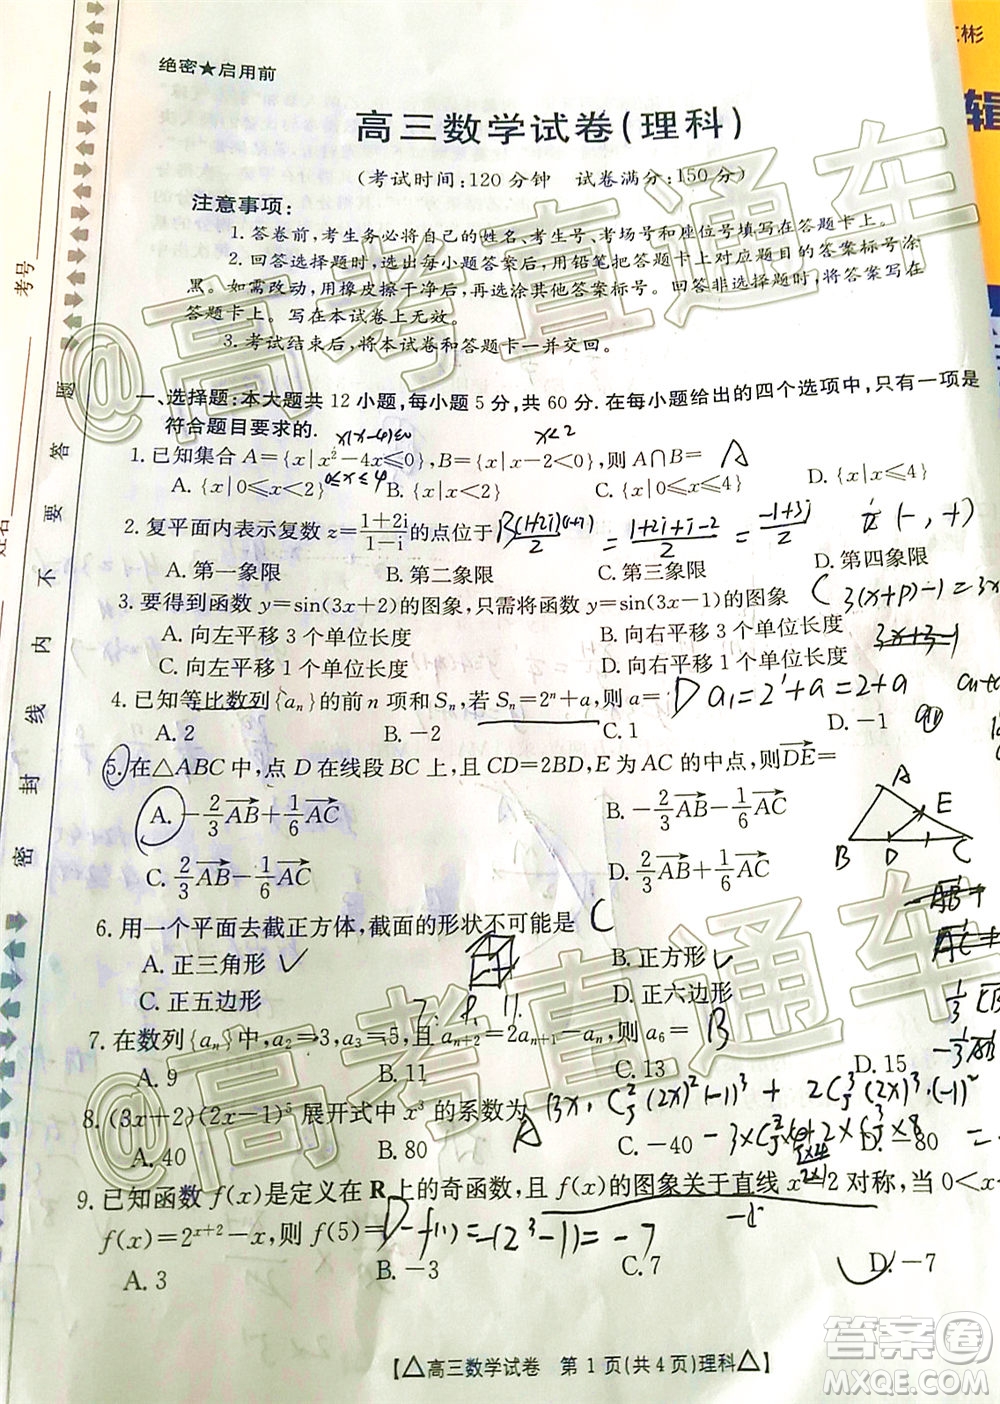 绝密★启用前
高三数学试卷(理科)
(考试时间:120分钟 试卷满分:150分)
注意事项:
1.答卷前,考生务必将自己的姓名、考生号、考场号和座位号填写在答题卡上。
2.回答选择题时,选出每小题答案后,用铅笔把答题卡上对应题目的答案标号涂
黑。如需改动,用橡皮擦干净后,再选涂其他答案标号。回答非选择题时,将答案写在
答题卡上。写在本试卷上无效。
3.考试结束后,将本试卷和答题卡一并交回。
一、选择题:本大题共12小题,每小题5分,共60分.在每小题给出的四个选项中,只有一项是
符合题目要求的.
x(x-4)≤0 x<2
1.已知集合A={x|x²-4x≤0},B={x|x-2<0},则A∩B= A
0≤x≤4
A.{x|0≤x≤2} B.{x|x<2} C.{x|0≤x<2} D.{x|x≤4}
2.复平面内表示复数z=(1+2i)/(1-i)的点位于 B (1+2i)(1+i)/2 = (1+2i+i-2)/2 = (-1+3i)/2 (-,+)
A.第一象限 B.第二象限 C.第三象限 D.第四象限
3.要得到函数y=sin(3x+2)的图象,只需将函数y=sin(3x-1)的图象 C 3(x+p)-1=3x
A.向左平移3个单位长度 B.向右平移3个单位长度
C.向左平移1个单位长度 D.向右平移1个单位长度
4.已知等比数列{aₙ}的前n项和Sₙ,若Sₙ=2ⁿ+a,则a= D a₁=2¹+a=2+a
A.2 B.-2 C.1 D.-1
5.在△ABC中,点D在线段BC上,且CD=2BD,E为AC的中点,则DE=
A.-2/3AB+1/6AC B.-2/3AB-1/6AC
C.2/3AB-1/6AC D.2/3AB+1/6AC
A E B D C
6.用一个平面去截正方体,截面的形状不可能是 C
A.正三角形 B.正方形
C.正五边形 D.正六边形
7. 9. 11.
7.在数列{aₙ}中,a₂=3,a₃=5,且aₙ₊₂=2aₙ₊₁-aₙ,则a₆= B
A.9 B.11 C.13 D.15
8.(3x+2)(2x-1)⁵展开式中x³的系数为
A
A.40 B.80 C.-40 D.-80
9.已知函数f(x)是定义在R上的奇函数,且f(x)的图象关于直线x=2对称,当0<x
f(x)=2ˣ⁺²-x,则f(5)= D -f(1)=-(2³-1)=-7
A.3 B.-3 C.7 D.-7
【△高三数学试卷 第1页(共4页)理科△】
考号
姓名
密 封 线 内 不 要 答 题
彬
辑
@高考直通车
@高考直通车
答案圈
MXQE.COM